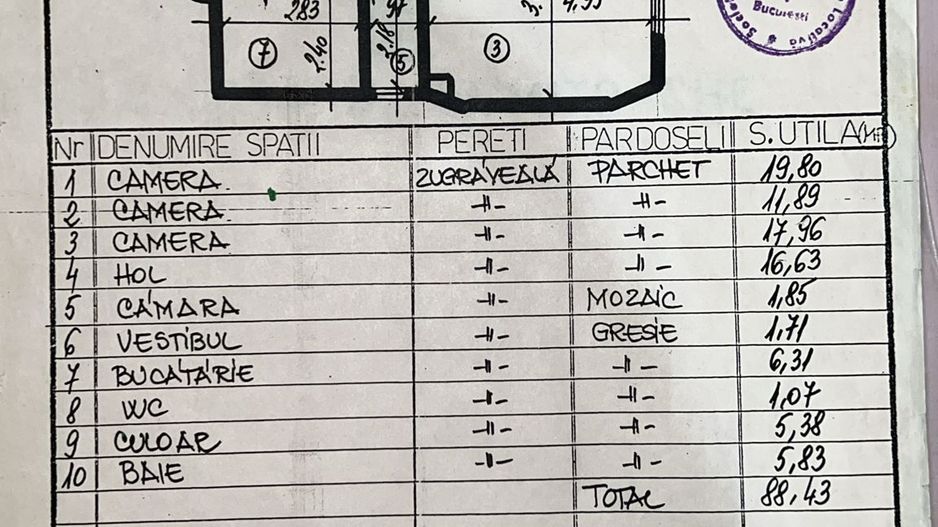 283
97
3.
4,95
Locativă
București
Societ
7
2.40
2.18
5
3
Nr DENUMIRE SPATII PERETI PARDOSELI S. UTILA(MP)
1 CAMERA ZUGRĂVEALĂ PARCHET 19,80
2 CAMERA -〃- -〃- 11,89
3 CAMERA -〃- -〃- 17,96
4 HOL -〃- -〃- 16,63
5 CĂMARA -〃- MOZAIC 1,85
6 VESTIBUL -〃- GRESIE 1,71
7 BUCĂTĂRIE -〃- -〃- 6,31
8 WC -〃- -〃- 1,07
9 CULOAR -〃- -〃- 5,38
10 BAIE -〃- -〃- 5,83
TOTAL 88,43